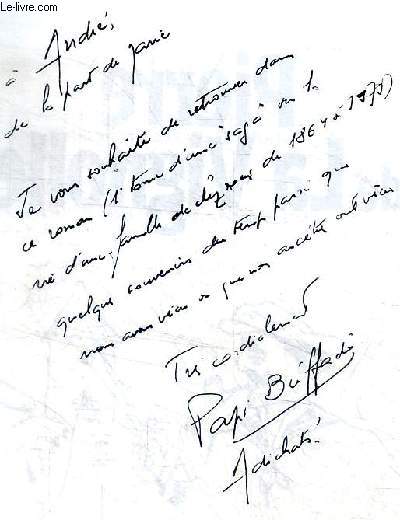 Le-livre.com
à André,
de la part de
Je vous souhaite de retrouver dans
ce roman (1er tome d'une saga sur la
vie d'une famille de de 1864 à 1977)
quelques souvenirs du temps passé que
nous avons vécu ou que nos ancêtres ont vécu
Très cordialement
Papi Buffadi
Adichats!